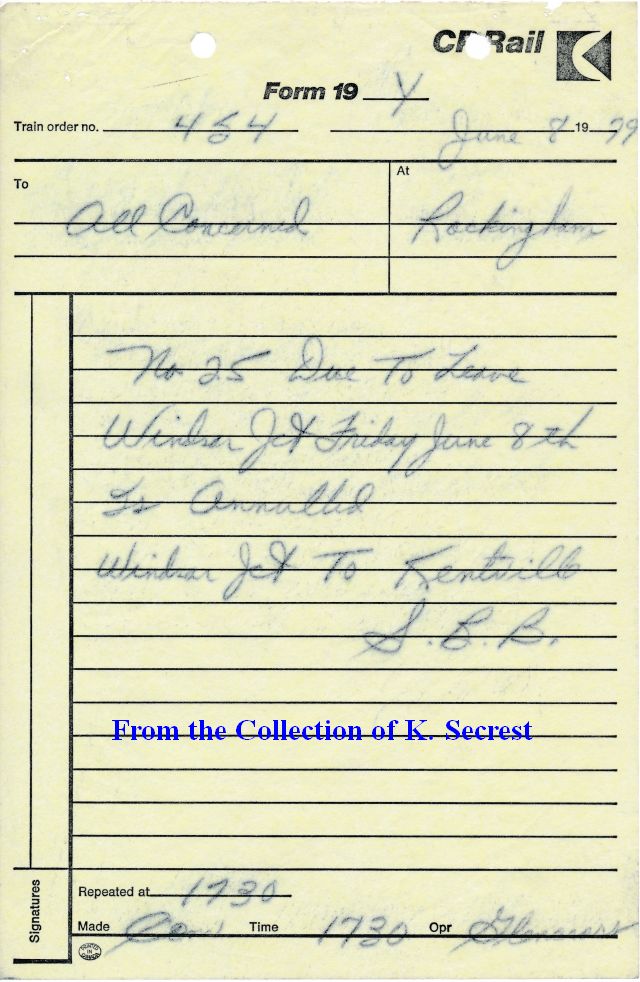 CP Rail
Form 19 Y
Train order no. 454 June 8 19 79
To At
All Concerned Rockingham
No 25 Due To Leave
Windsor Jct Friday June 8th
Is Annulled
Windsor Jct To Kentville
S.B.B.
From the Collection of K. Secrest
Repeated at 1730
Made Com Time 1730 Opr
Signatures
PRINTED IN CANADA